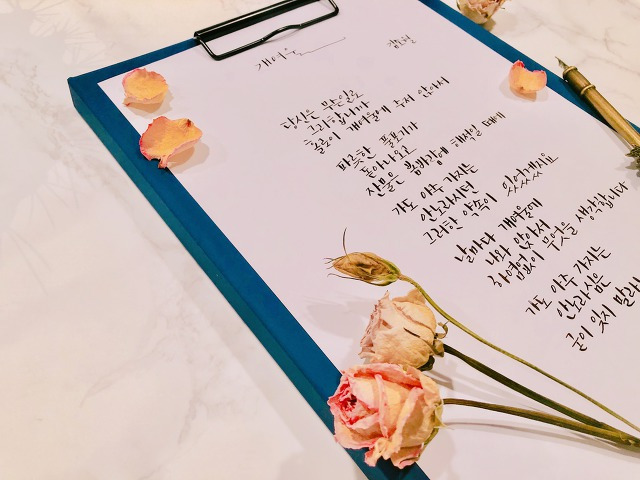 개여울
김소월
당신은 무슨일로
그리합니까
홀로이 개여울에 주저 앉아서
파릇한 풀포기가
돋아나오고
잔물은 봄바람에 해적일 때에
가도 아주 가지는
안노라시던
그러한 약속이 있었겠지요
날마다 개여울에
나와 앉아서
하염없이 무엇을 생각합니다
가도 아주 가지는
안노라심은
굳이 잊지 말라